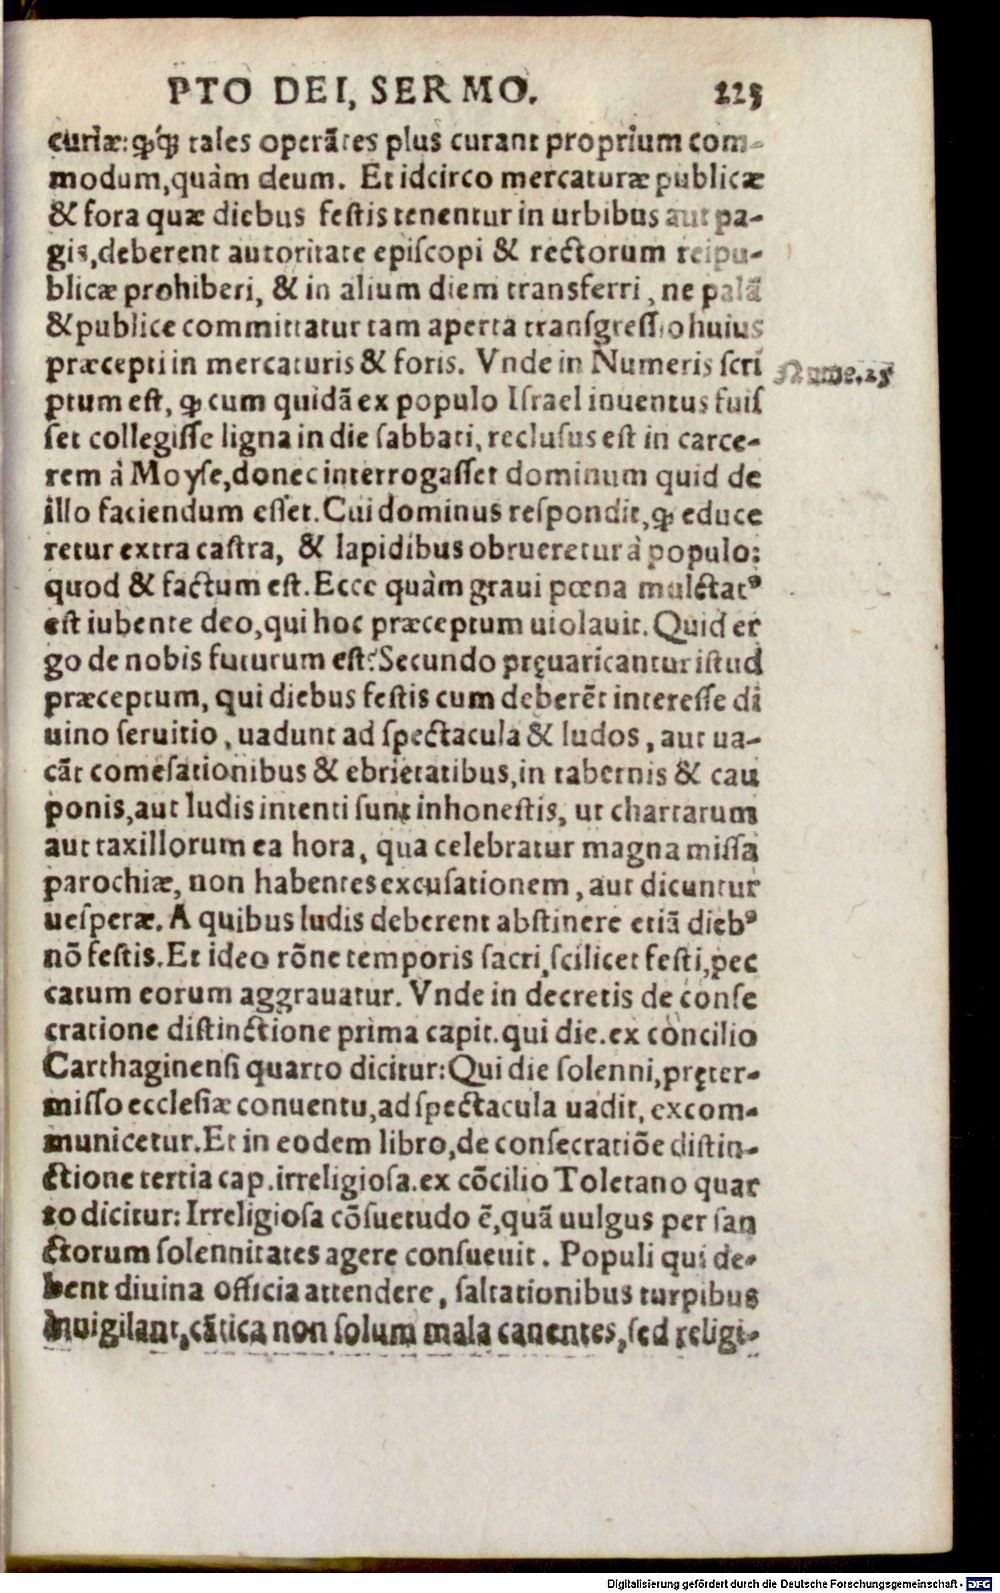 PTO DEI, SERMO. 225
curiæ: ꝙꝗ tales operãtes plus curant proprium com-
modum, quàm deum. Et idcirco mercaturæ publicæ
& fora quæ diebus festis tenentur in urbibus aut pa-
gis, deberent autoritate episcopi & rectorum reipu-
blicæ prohiberi, & in alium diem transferri, ne palã
& publice committatur tam aperta transgressio huius
præcepti in mercaturis & foris. Vnde in Numeris scri
Nume.25
ptum est, ꝙ cum quidã ex populo Israel inuentus fuis
set collegisse ligna in die sabbati, reclusus est in carce-
rem à Moyse, donec interrogasset dominum quid de
illo faciendum esset. Cui dominus respondit, ꝙ educe
retur extra castra, & lapidibus obrueretur à populo:
quod & factum est. Ecce quàm graui pœna mulctatꝰ
est iubente deo, qui hoc præceptum uiolauit. Quid er
go de nobis futurum est? Secundo pręuaricantur istud
præceptum, qui diebus festis cum deberẽt interesse di
uino seruitio, uadunt ad spectacula & ludos, aut ua-
cãt comesationibus & ebrietatibus, in tabernis & cau
ponis, aut ludis intenti sunt inhonestis, ut chartarum
aut taxillorum ea hora, qua celebratur magna missa
parochiæ, non habentes excusationem, aut dicuntur
uesperæ. A quibus ludis deberent abstinere etiã diebꝰ
nõ festis. Et ideo rõne temporis sacri, scilicet festi, pec
catum eorum aggrauatur. Vnde in decretis de conse
cratione distinctione prima capit. qui die. ex concilio
Carthaginensi quarto dicitur: Qui die solenni, pręter-
misso ecclesiæ conuentu, ad spectacula uadit, excom-
municetur. Et in eodem libro, de consecratiõe distin-
ctione tertia cap. irreligiosa. ex cõcilio Toletano quar
to dicitur: Irreligiosa cõsuetudo ẽ, quã uulgus per san
ctorum solennitates agere consueuit. Populi qui de-
bent diuina officia attendere, saltationibus turpibus
inuigilant, cãtica non solum mala canentes, sed religi-
Digitalisierung gefördert durch die Deutsche Forschungsgemeinschaft - DFG